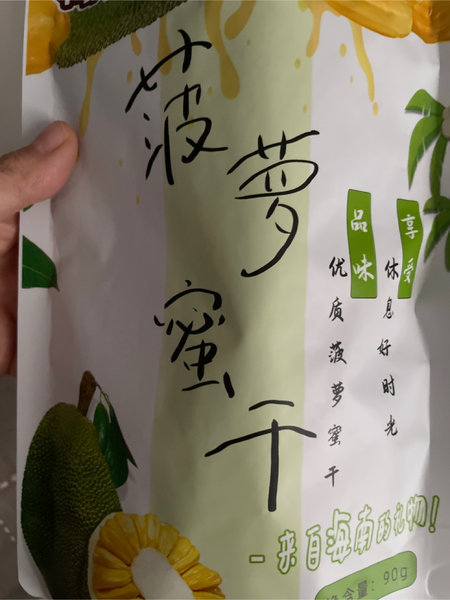 菠萝蜜干
享受休息好时光
品味优质菠萝蜜干
-来自海南的礼物!
净含量: 90g